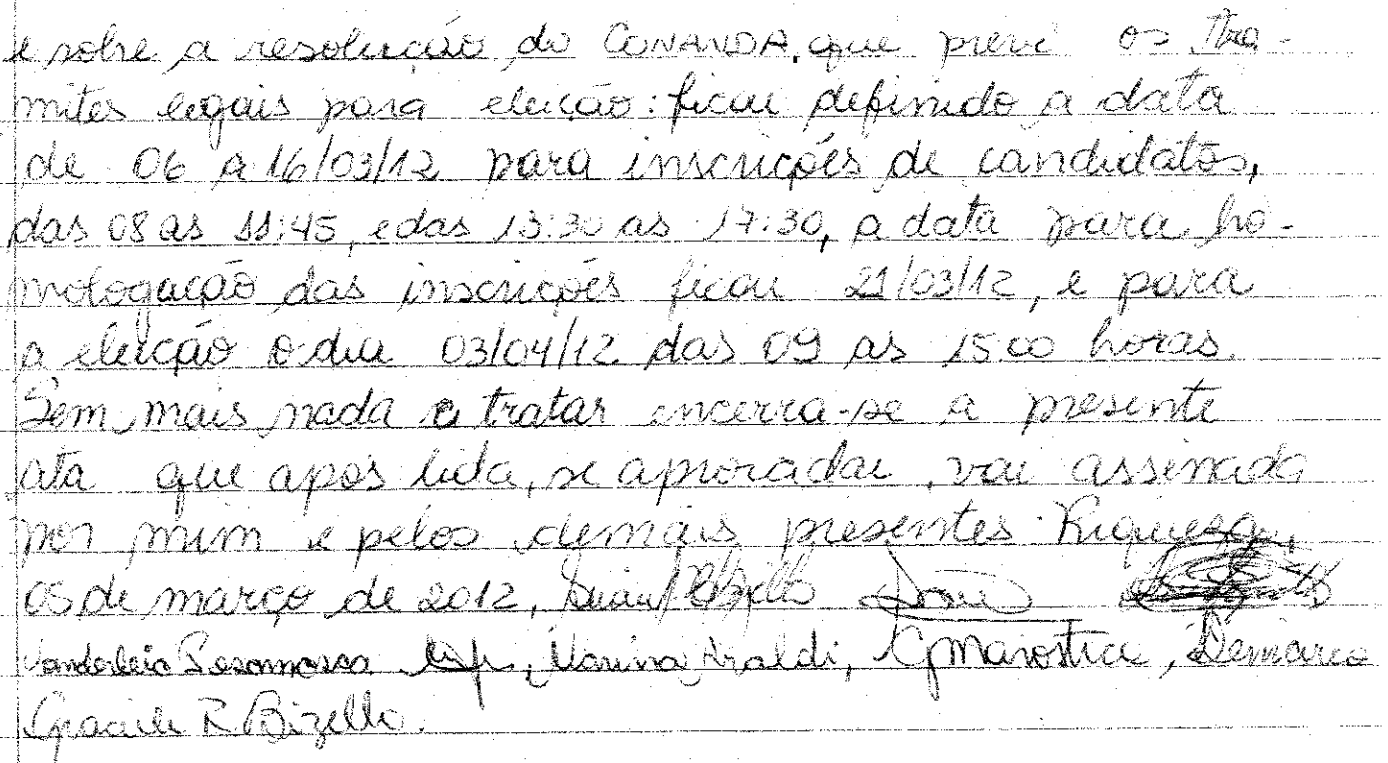 e sobre a resolução do CONANDA, que prevê os trâ-
mites legais para eleição: ficou definido a data
de 06 a 16/03/12 para inscrições de candidatos,
das 08 as 11:45, e das 13:30 as 17:30, a data para ho-
mologação das inscrições ficou 21/03/12, e para
a eleição o dia 03/04/12 das 09 as 15:00 horas.
Sem mais nada a tratar encerra-se a presente
ata que após lida, se aprovada, vai assinada
por mim e pelos demais presentes. Riqueza,
05 de março de 2012,
Marina Araldi, G Marostica,
R Bizello.